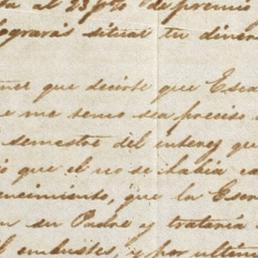 ta al 23 p% de premio
lograrás situar tu diner
que decirte que Esca
e me temo sea preciso
semestre del interes que
que el no se habia ca
encimiento, que la Escr
su Padre y trataria
embustes, y por ultim